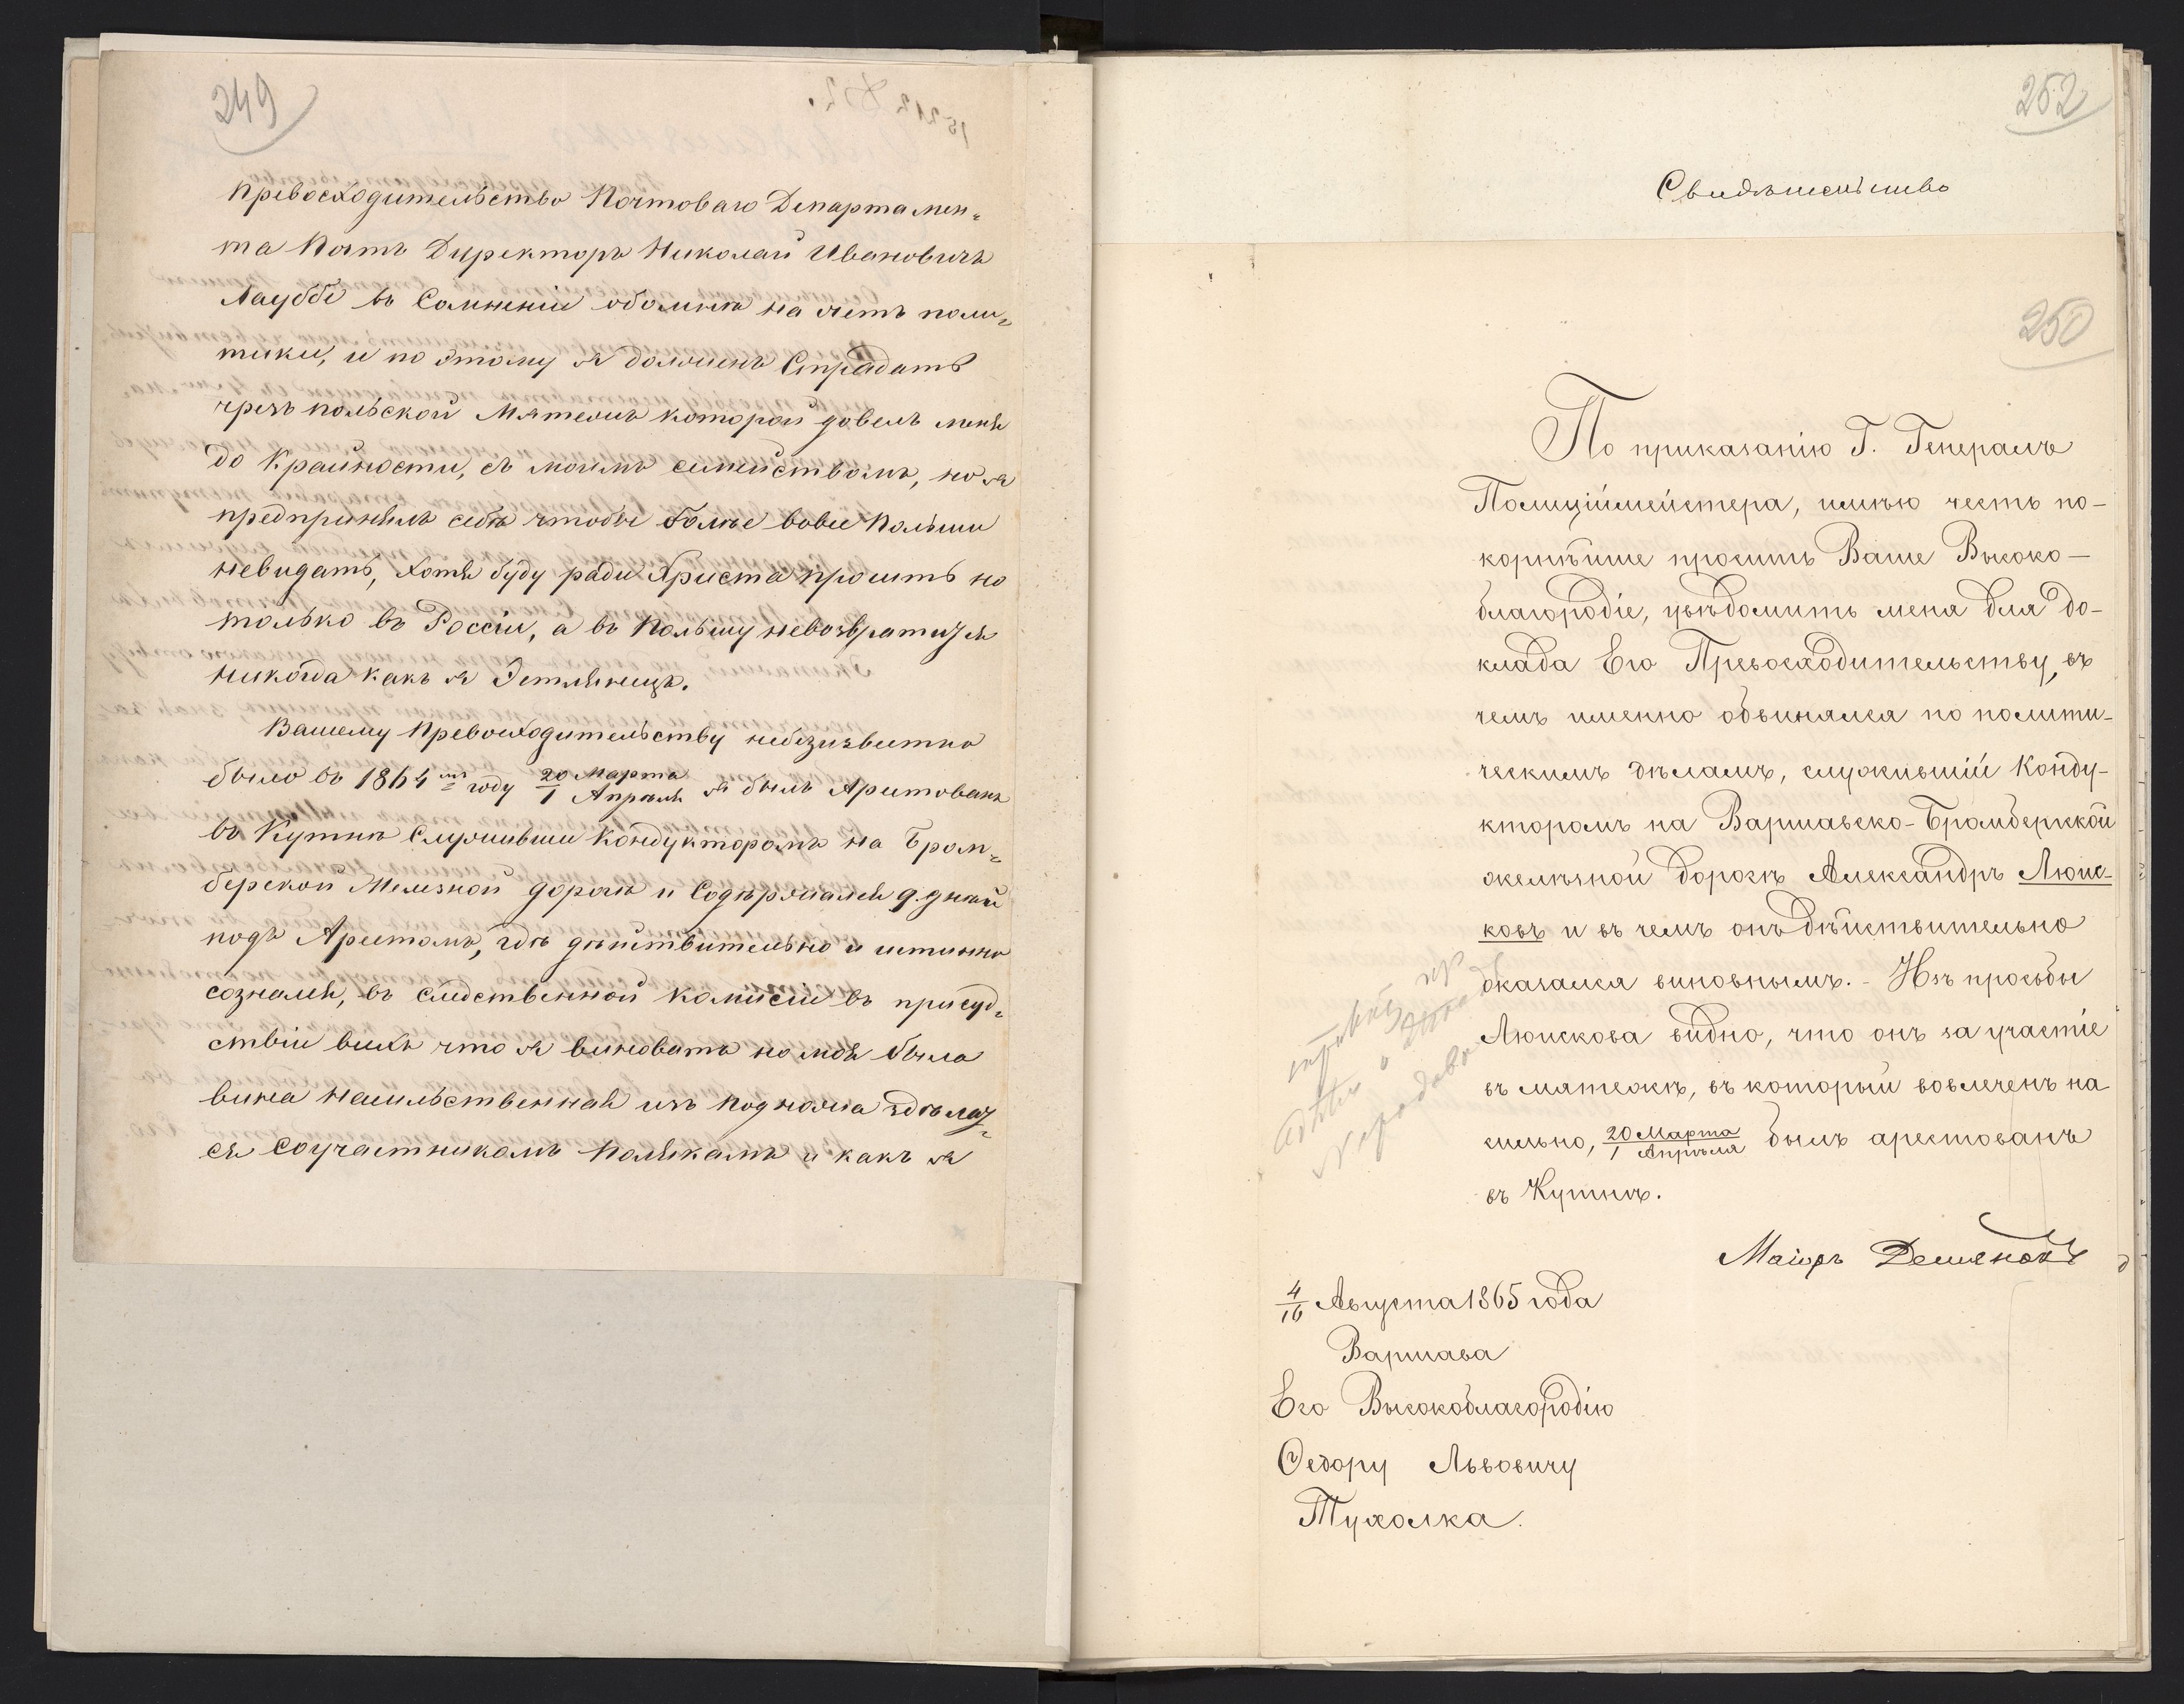 249
превосходительство Почтоваго Департамен=
та Почтъ Директоръ Николай Ивановичъ
Лаубе въ Сомненіи обомне на счетъ поли=
тики, и по этому я долженъ Страдать
чрезъ польской Мятежъ которой довелъ меня
до Крайности, съ моимъ семействомъ, но я
предпринялъ себе чтобы более вовсе Польши
невидать, хотя буду ради Христа просить но
только въ Россіи, а въ Польшу невозвратюся
никогда какъ я Эстлянецъ.
Вашему Превосходительству небезизвестно
было въ 1864мъ году 20 Марта / 1 Апреля я былъ Арестованъ
въ Кутне Служивши Кондукторомъ на Бром=
бергской Железной дороге и Содержался 9. дней
подъ Арестомъ, где действительно и истинно
сознался, въ следственной комисіи въ присуд=
ствіи всехъ что я виноватъ но моя была
вина насильственная изъ под ножа зделал=
ся Соучастникомъ Полякамъ и какъ я
252
Свидѣтельство
250
По приказанію Г. Генералъ
Полиціймейстера, имѣю честь по-
корнѣйше просить Ваше Высоко-
благородіе, увѣдомить меня для до-
клада Его Превосходительству, въ
чемъ именно обвинялся по полити-
ческимъ дѣламъ, служившій Конду-
кторомъ на Варшавско-Бромбергской
желѣзной дорогѣ Александръ Люис-
ковъ и въ чемъ онъ дѣйствительно
оказался виновнымъ. - Изъ просьбы
Люискова видно, что онъ за участіе
въ мятежѣ, въ который вовлеченъ на
сильно, 20 Марта / 1 Апрѣля былъ арестованъ
въ Кутнѣ.
Маіоръ Демяновъ
4/16 Августа 1865 года
Варшава
Его Высокоблагородію
Федору Львовичу
Тухолка.